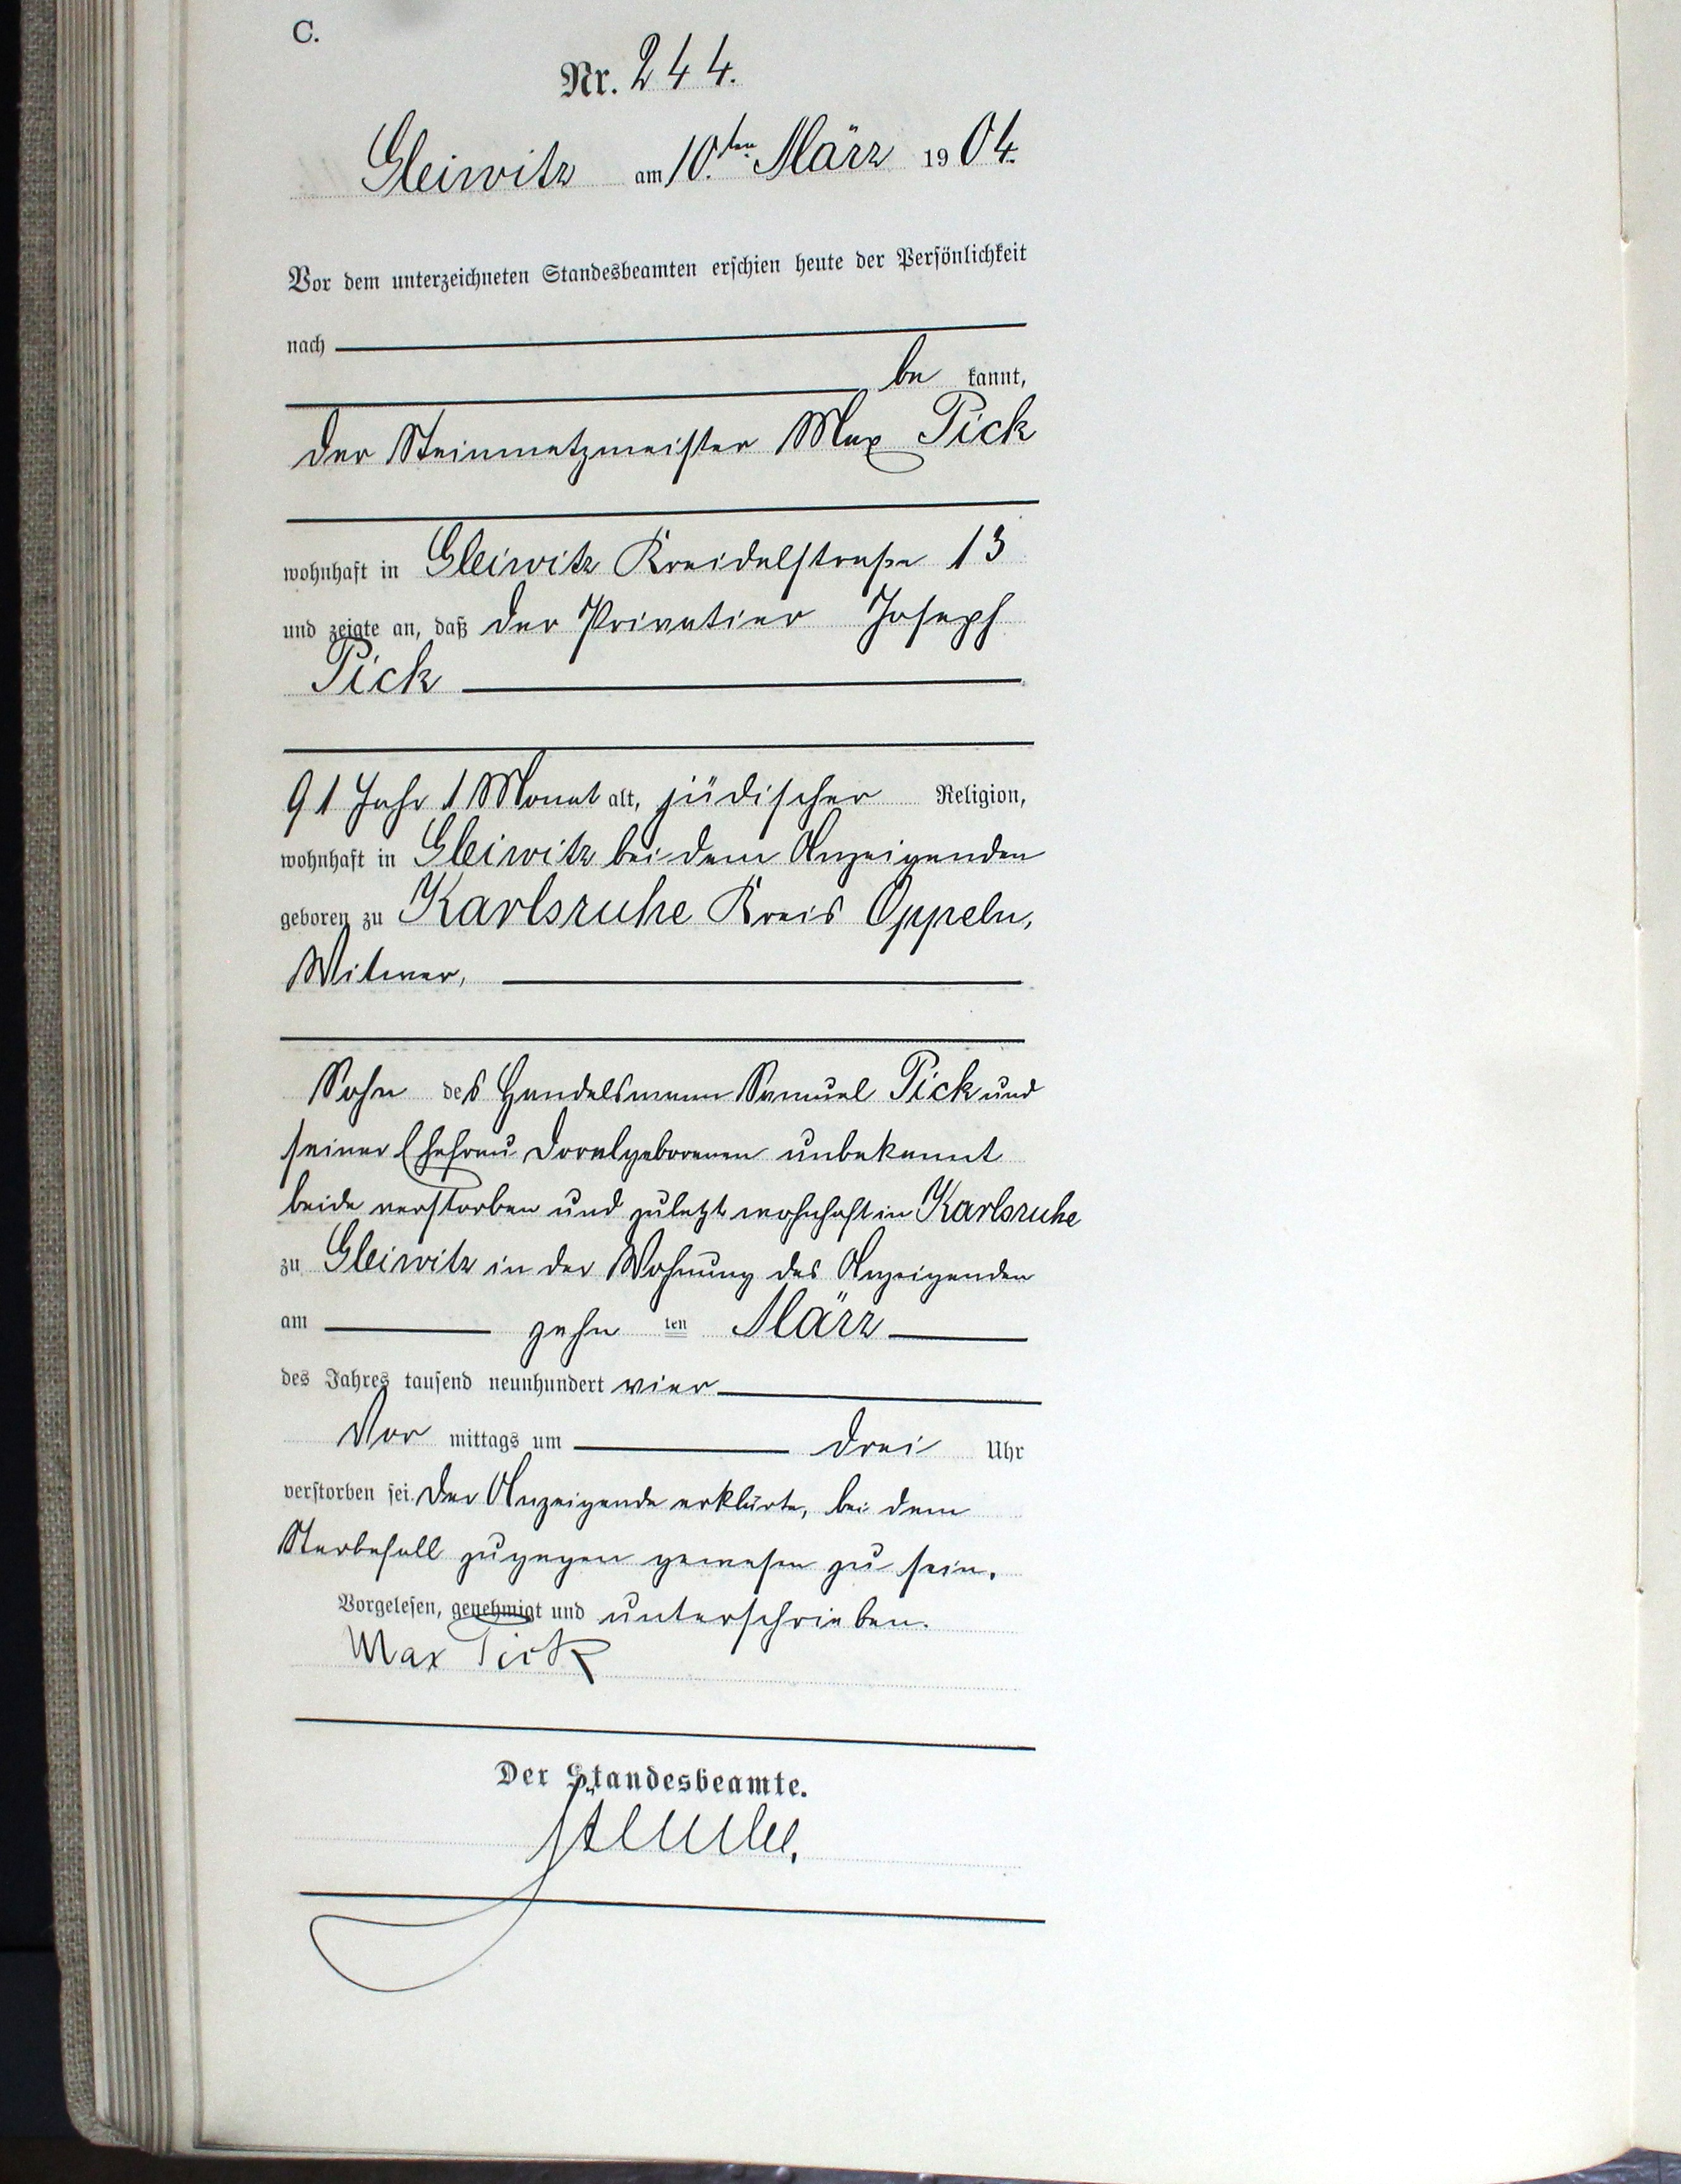 C.
Nr. 244.
Gleiwitz am 10.ten März 1904.
Vor dem unterzeichneten Standesbeamten erschien heute der Persönlichkeit
nach
be kannt,
der Steinmetzmeister Max Pick
wohnhaft in Gleiwitz Kreidelstraße 13
und zeigte an, daß der Privatier Joseph
Pick
91 Jahr 1 Monat alt, jüdischer Religion,
wohnhaft in Gleiwitz bei dem Anzeigenden
geboren zu Karlsruhe Kreis Oppeln,
Witwer,
Sohn des Handelsmann Samuel Pick und
seiner Ehefrau geborenen unbekannt
beide verstorben und zuletzt wohnhaft in Karlsruhe
zu Gleiwitz in der Wohnung des Anzeigenden
am zehn ten März
des Jahres tausend neunhundert vier
Vor mittags um drei Uhr
verstorben sei. Der Anzeigende erklärte, bei dem
Sterbefall zugegen gewesen zu sein.
Vorgelesen, genehmigt und unterschrieben.
Max Pick
Der Standesbeamte.